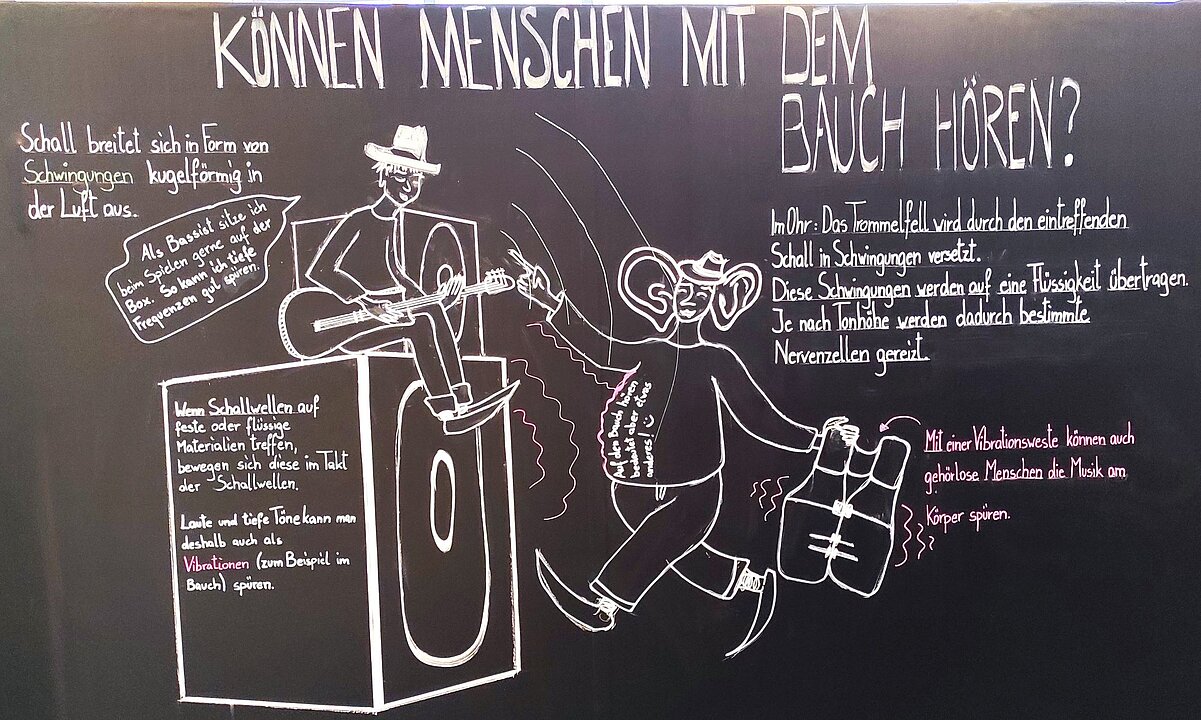 KÖNNEN MENSCHEN MIT DEM
BAUCH HÖREN?
Schall breitet sich in Form von
Schwingungen kugelförmig in
der Luft aus.
Als Bassist sitze ich
beim Spielen gerne auf der
Box. So kann ich tiefe
Frequenzen gut spüren.
Im Ohr: Das Trommelfell wird durch den eintreffenden
Schall in Schwingungen versetzt.
Diese Schwingungen werden auf eine Flüssigkeit übertragen.
Je nach Tonhöhe werden dadurch bestimmte
Nervenzellen gereizt.
Wenn Schallwellen auf
feste oder flüssige
Materialien treffen,
bewegen sich diese im Takt
der Schallwellen.
Laute und tiefe Töne kann man
deshalb auch als
Vibrationen (zum Beispiel im
Bauch) spüren.
Auf den Bauch hören
bedeutet aber etwas
anderes!
Mit einer Vibrationsweste können auch
gehörlose Menschen die Musik am
Körper spüren.